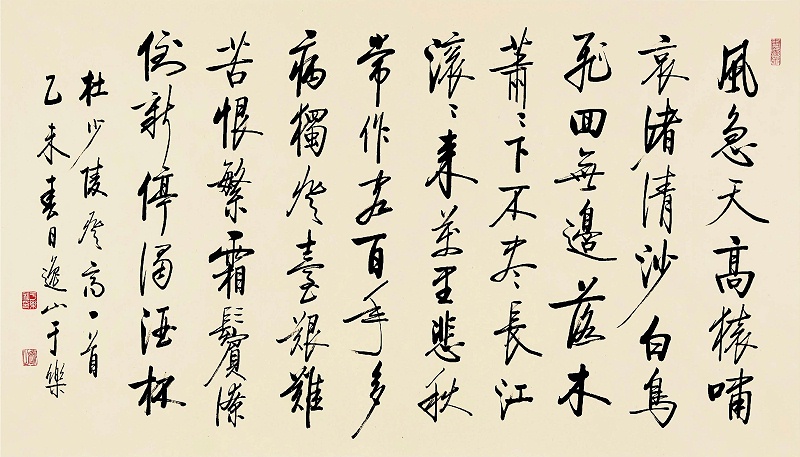 風急天高猿嘯
哀渚清沙白鳥
飛回無邊落木
蕭〻下不盡長江
滾〻來萬里悲秋
常作客百年多
病獨登臺艱難
苦恨繁霜鬢潦
倒新停濁酒杯
杜少陵登高一首
乙未春日逸山于樂